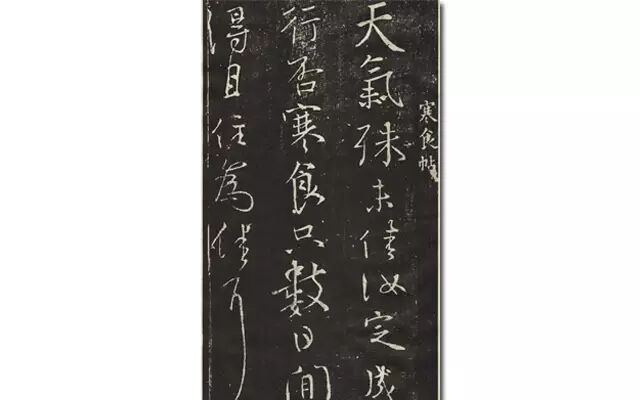 寒食帖
天氣殊未佳汝定成
行否寒食只數日間
得且住為佳耳